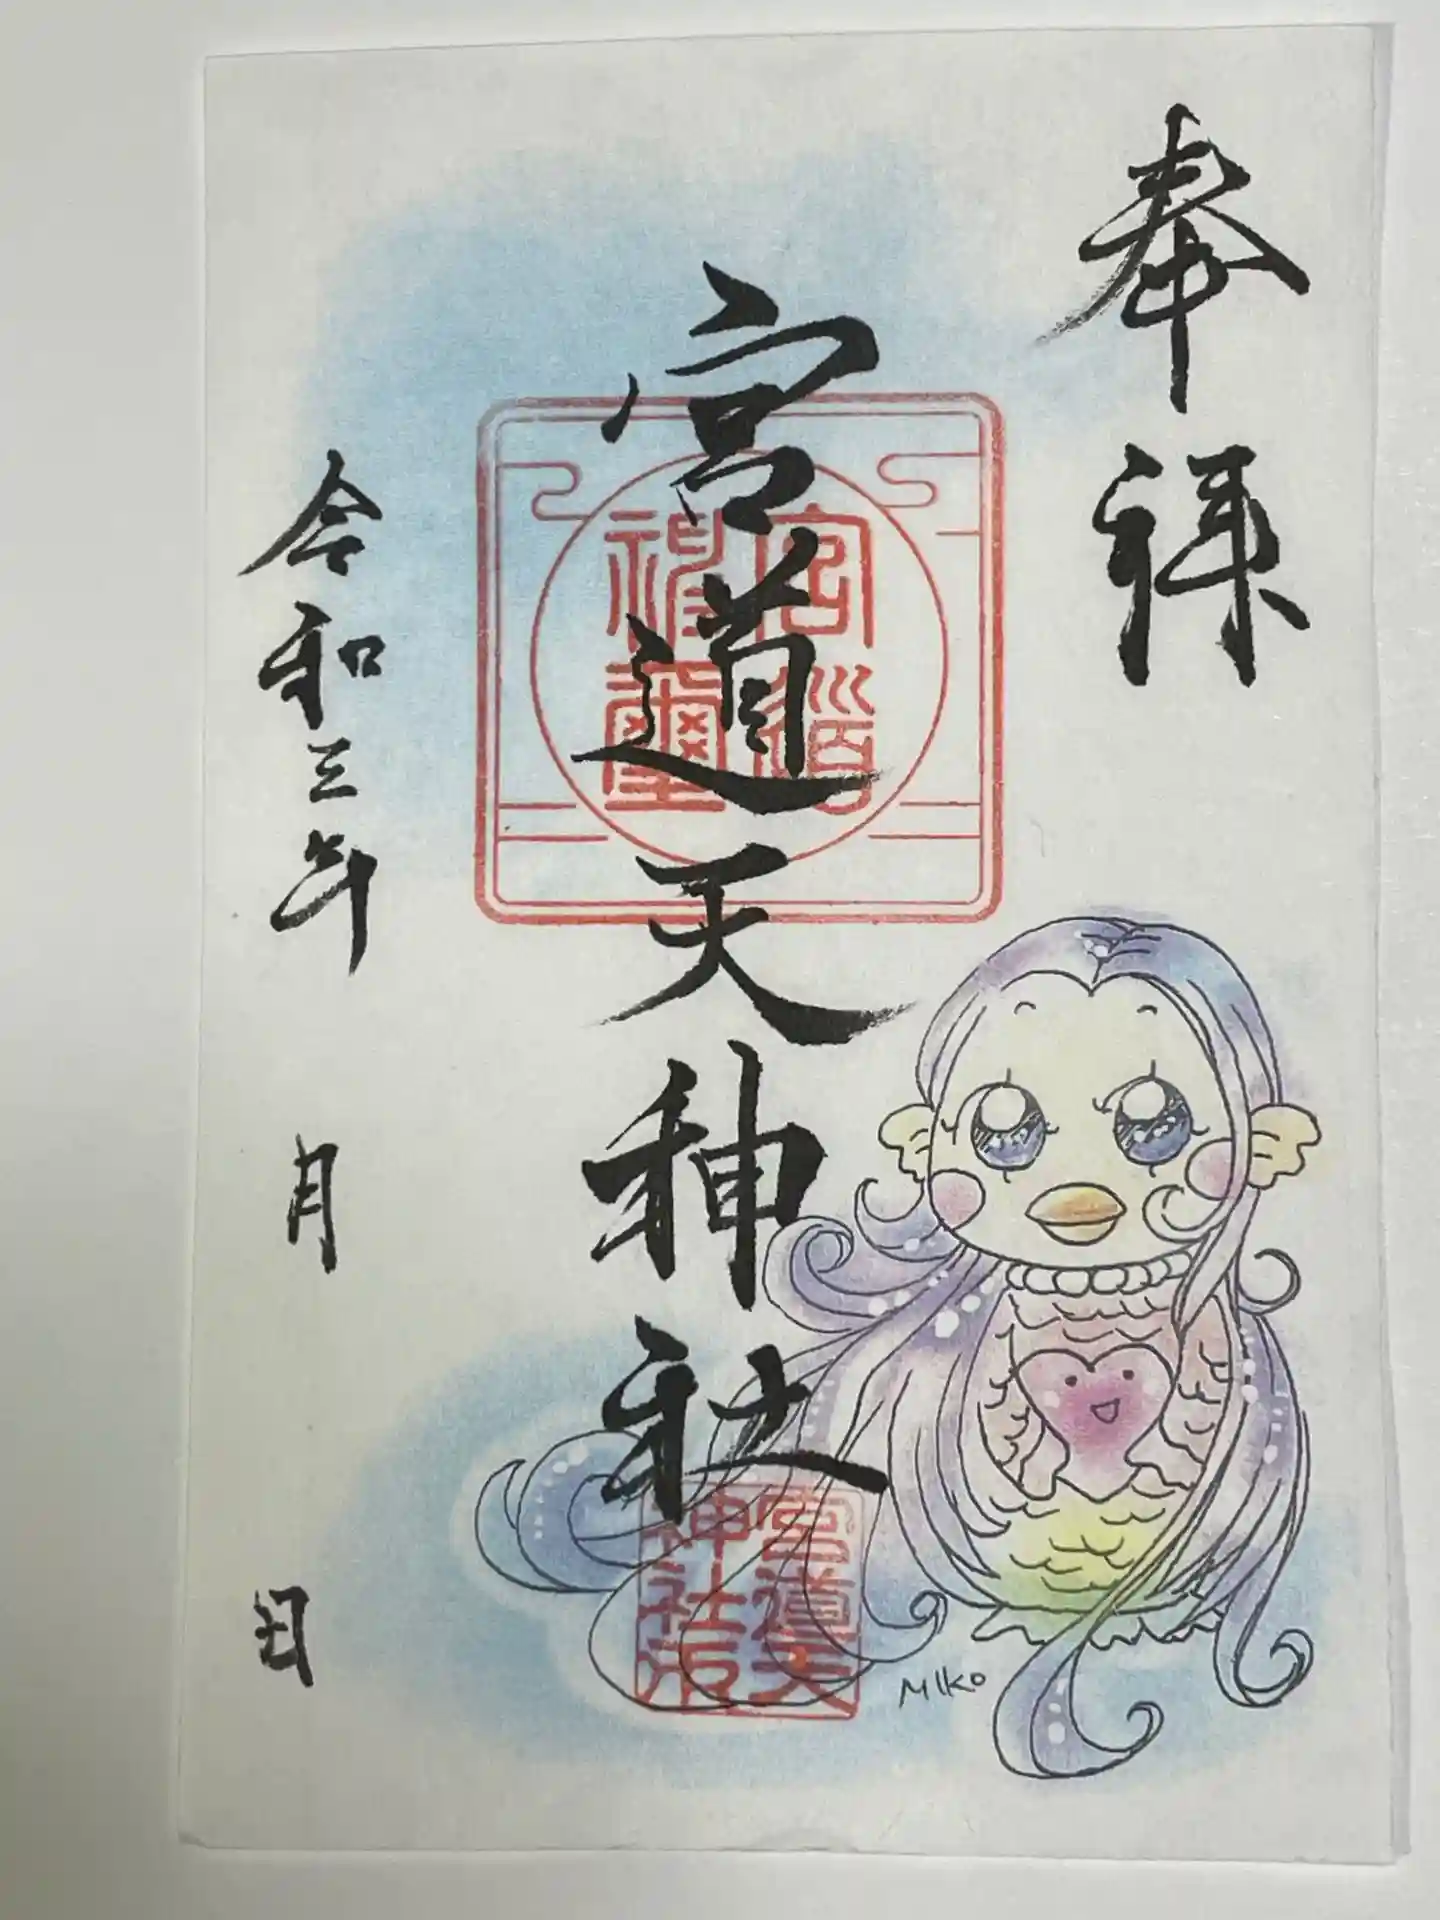 奉拝
宮道天神社
宮道
神璽
宮道天
神社印
令和三年 月 日
MIKO